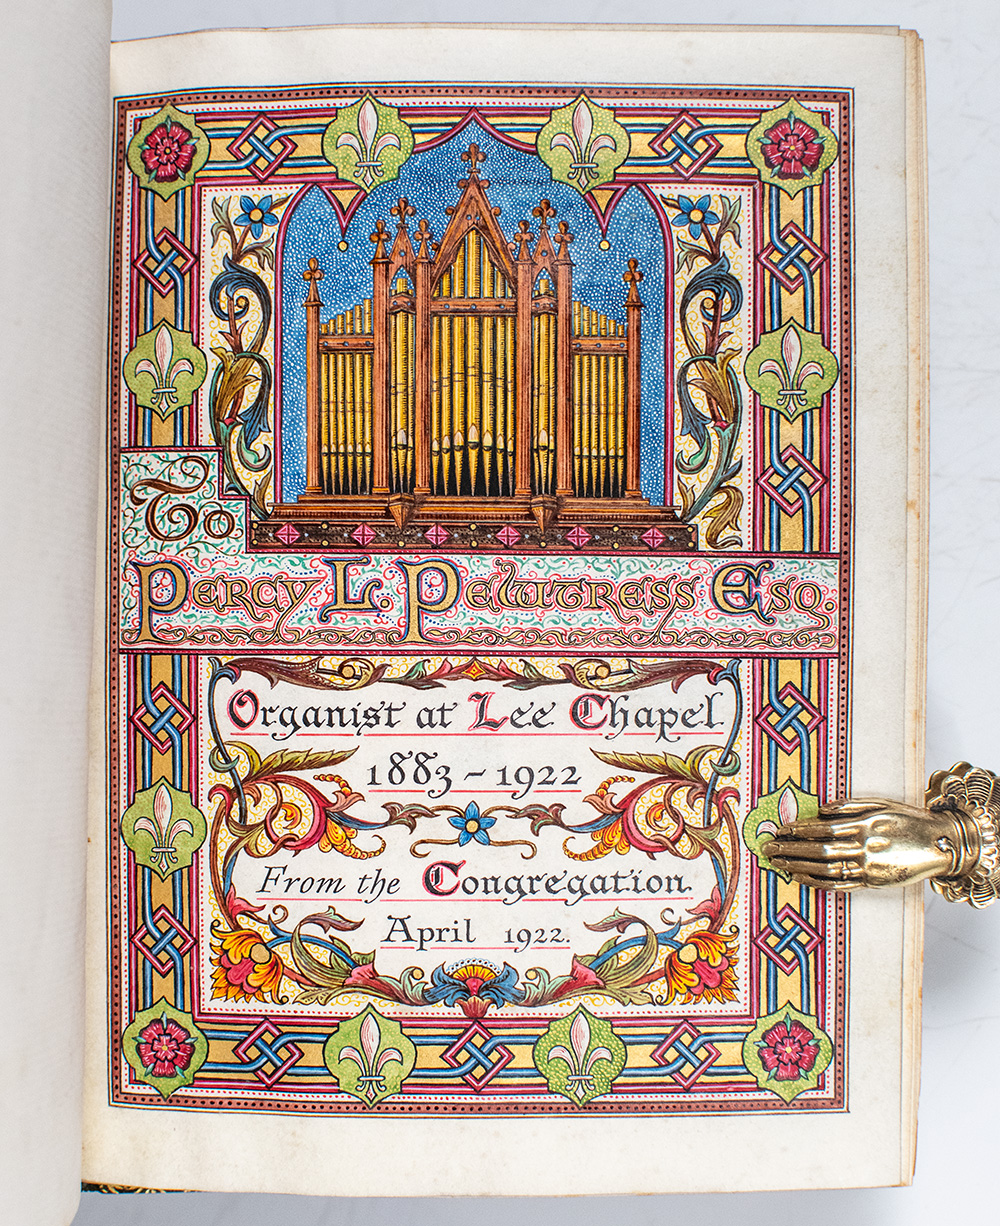 To
Percy L. Pewtress Esq.
Organist at Lee Chapel
1883 – 1922
From the Congregation
April 1922.